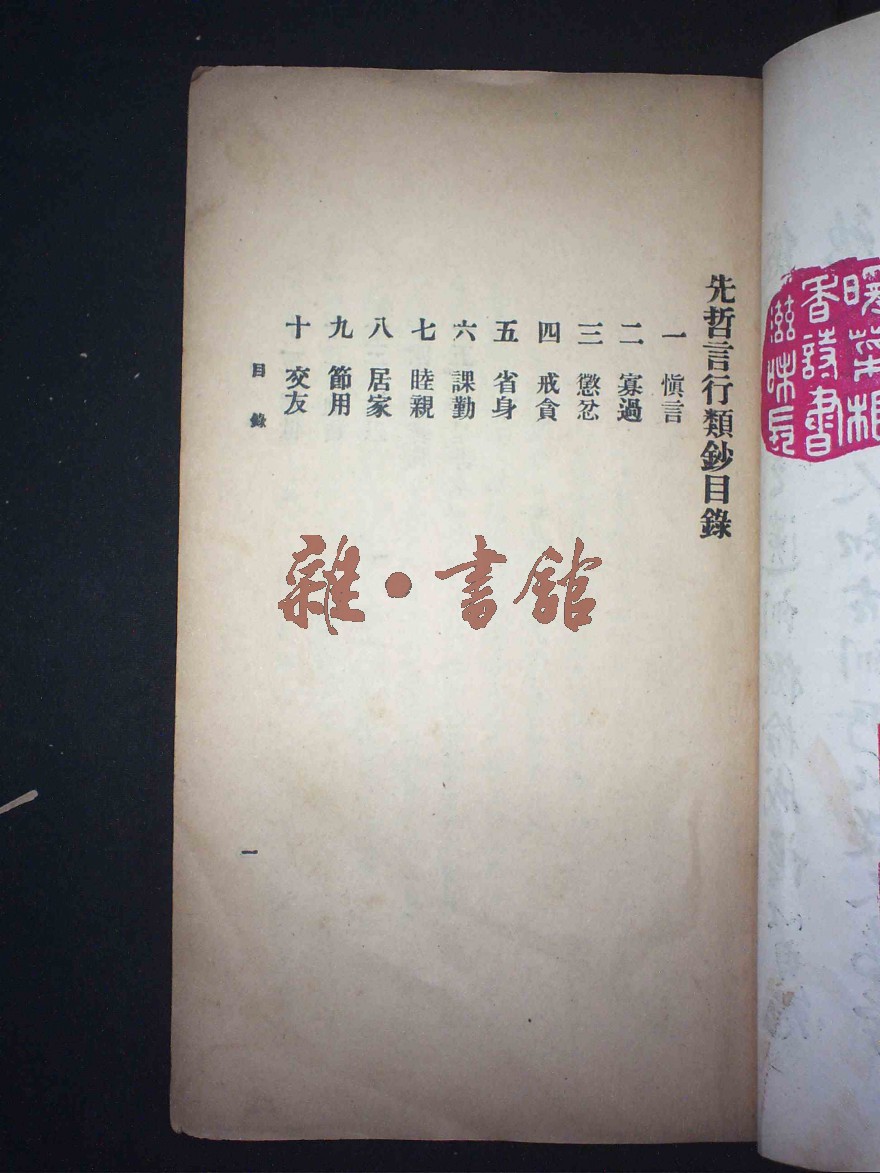 先哲言行類鈔目錄
一 愼言
二 寡過
三 懲忿
四 戒貪
五 省身
六 課勤
七 睦親
八 居家
九 節用
十 交友
目錄
一
雜·書館
暖菜根
香詩書
滋味長